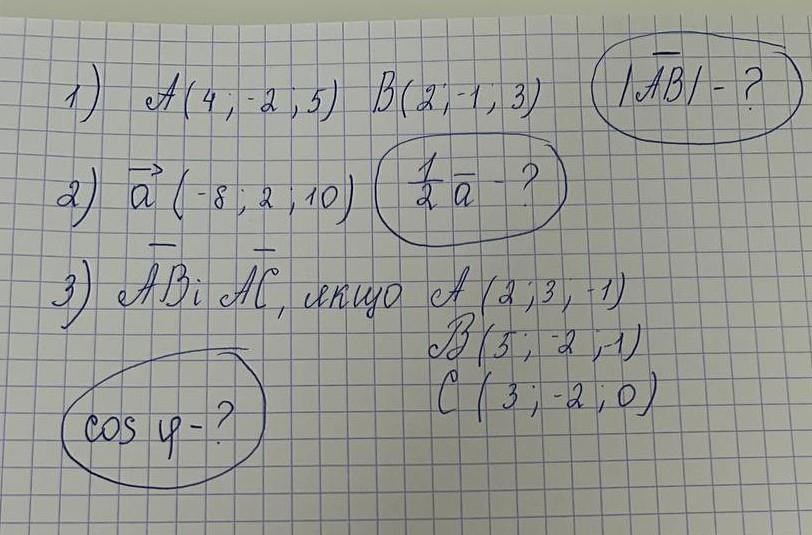 1) A(4; -2; 5) B(2; -1; 3) |AB| - ?
2) a (-8; 2; 10) 1/2 a - ?
3) AB i AC, якщо A (2; 3; -1)
B (5; -2; -1)
C (3; -2; 0)
cos φ - ?